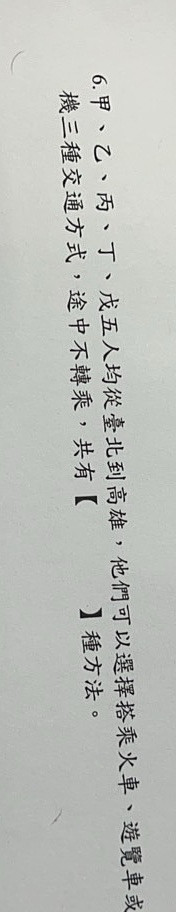 6. 甲、乙、丙、丁、戊五人均從臺北到高雄，他們可以選擇搭乘火車、遊覽車或
機三種交通方式，途中不轉乘，共有【　　　】種方法。